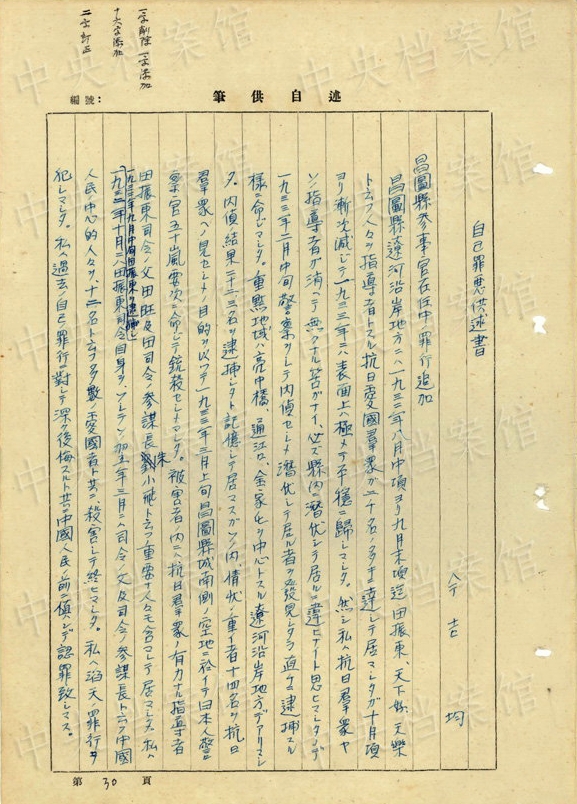 述自供筆
編號:
一字削除一字添加
十六字添加
二字訂正
自己罪悪供述書
吉 均
昌圖縣參事官在任中ノ罪行追加
昌圖縣遼河沿岸地方ニハ一九三二年八月中項ヨリ九月末項迄田振東、天下好、天樂
トユフ人々ヲ指導者トスル抗日愛國羣衆ガ二十名ノ多キニ達シテ居マシタガ十月項
ヨリ漸次減ジテ一九三三年ニハ表面上ハ極メテ平穩ニ歸シマシタ。然シ私ハ抗日羣衆ヤ
ソノ指導者ガ消ヘテ無クナル筈ガナイ、必ズ縣内ニ潛伏シテ居ルニ違ヒナイト思ヒマシタノデ
一九三三年二月中旬警察ヲシテ内偵セシメ潛伏シテ居ル者ヲ発見シタラ直チニ逮捕スル
様ニ命ジマシタ。重點地域ハ亮中橋、通江口、金家屯ヲ中心トスル遼河沿岸地方デアリマシ
タ。内偵ノ結果二十三名ヲ逮捕シタト記憶シテ居マスガソノ内、情状ノ重イ者十四名ヲ抗日
羣衆ヘノ見セシメノ目的ヲ以ツテ一九三三年三月上旬昌圖縣城南側ノ空地ニ於イテ日本人警
察官五十嵐要次ニ命ジテ銃殺セシメマシタ。被害者ノ内ニハ抗日羣衆ノ有力ナル指導者
田振東司令ノ父田旺及田司令ノ參謀長朱小飛トユフ重要ナ人々モ含マレテ居マシタ。私ハ
一九三二年九月中旬田振東ヲ逮捕シ
一九三二年十月ニハ田振東司令自身ヲ、ソレデ翌年三月ニハ司令ノ父及司令ノ參謀長トユフ中國
人民ノ中心的人々ヲ、十二名トユフ多數ノ愛國者ト共ニ殺害シテ終ヒマシタ。私ハ滔天ノ罪行ヲ
犯シマシタ。私ハ過去ノ自己罪行ニ對シテ深ク後悔スルト共ニ中國人民ノ前ニ慎シンデ認罪致シマス。
第 30 頁
中央档案馆